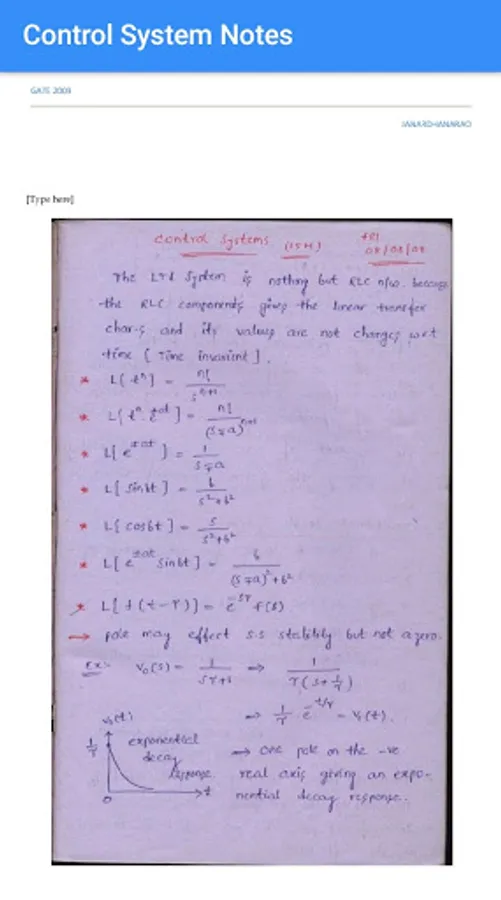 Control System Notes
GATE 2009
JANARDHANARAO
[Type here]
Control Systems (15M)
The LTI System is nothing but RLC n/w. because
the RLC components gives the linear transfer
char-s and its values are not charges w.r.t
time [Time invarient].
* L[t^n] = n!/s^(n+1)
* L[t^n. e^(±at)] = n!/(s∓a)^(n+1)
* L[e^(±at)] = 1/(s∓a)
* L[sinbt] = b/(s²+b²)
* L[cosbt] = s/(s²+b²)
* L[e^(±at) sinbt] = b/((s∓a)²+b²)
* L[f(t-τ)] = e^(-sτ) F(s)
→ pole may effect s.s stability but not a zero.
Ex:- V₀(s) = 1/(sτ+1) ⇒ 1/(τ(s+1/τ))
⇒ 1/τ e^(-t/τ) = V₀(t).
V₀(t)
1/τ
exponential
decay
response
t
0
→ one pole on the -ve
real axis giving an expo-
nential decay response.